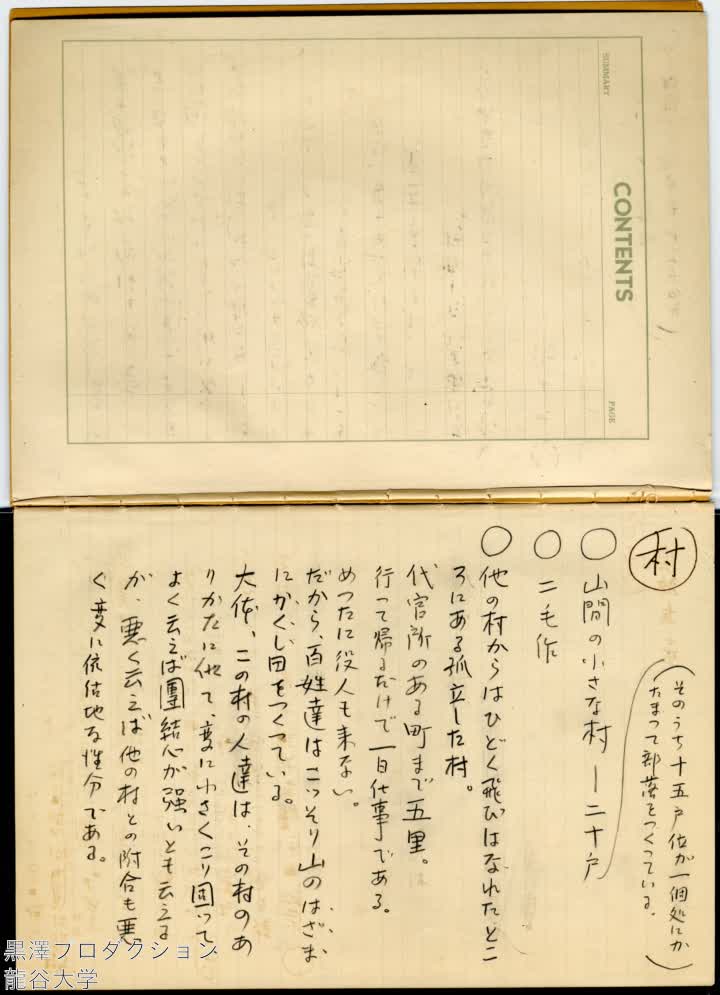 SUMMARY
CONTENTS
PAGE
村
(そのうち十五戸位が一個処にか
たまつて部落をつくっている。)
○ 山間の小さな村 ー 二十戸
○ 二毛作
○ 他の村からはひどく飛びはなれたとこ
ろにある孤立した村。
代官所のある町まで五里。
行って帰るだけで一日仕事である。
めつたに役人も来ない。
だから、百姓達はこっそり山のはざま
にかくし田をつくっている。
大体、この村の人達は、その村のあ
りかたに似て、変に小さくこり固って
よく云えば團結心が強いとも云える
が、悪く云えば他の村との附合も悪
く変に依怙地な性分である。
黒澤プロダクション
龍谷大学